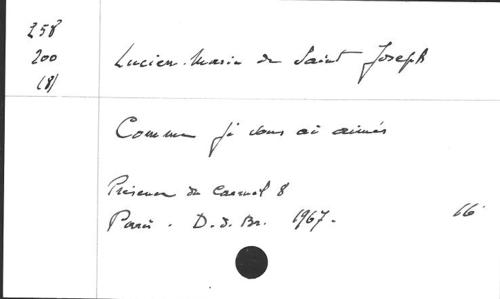 258
200
(8)
Lucien-Marie de Saint Joseph
Comme je vous ai aimés
Présence du Carmel 8
Paris. D.d.Br. 1967.
16